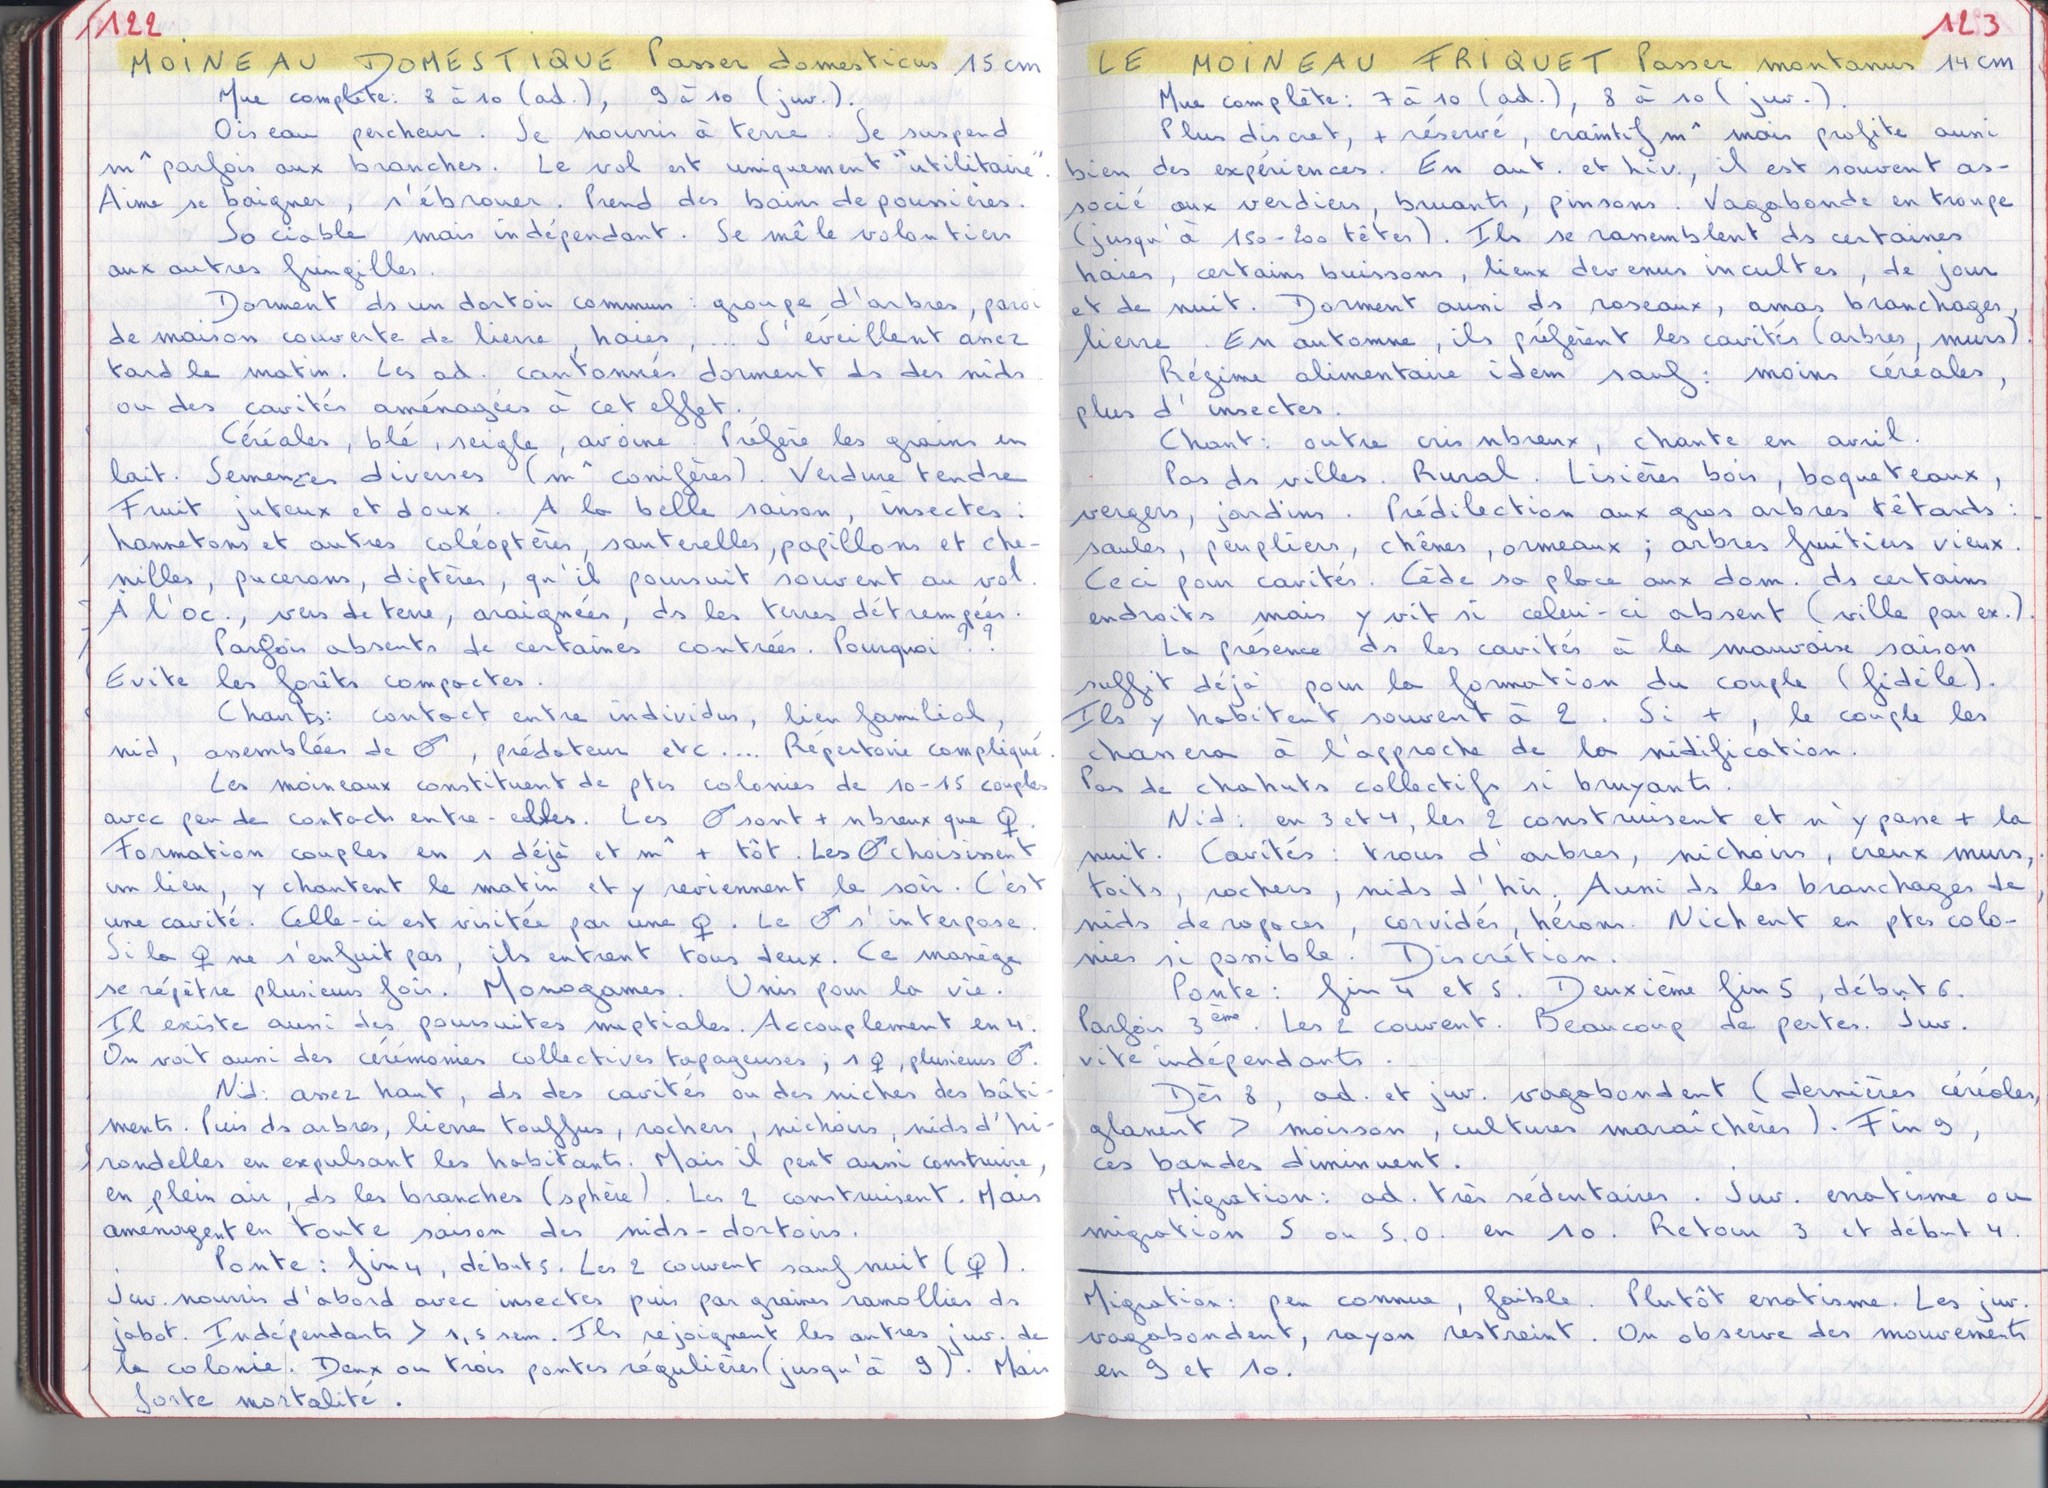 122
MOINEAU DOMESTIQUE Passer domesticus 15 cm
Mue complète: 8 à 10 (ad.), 9 à 10 (juv.).
Oiseau percheur. Se nourris à terre. Se suspend
m^ parfois aux branches. Le vol est uniquement "utilitaire".
Aime se baigner, s'ébrouer. Prend des bains de poussières.
Sociable mais indépendant. Se mêle volontiers
aux autres fringilles.
Dorment ds un dortoir commun: groupe d'arbres, paroi
de maison couverte de lierre, haies, ... S'éveillent assez
tard le matin. Les ad. cantonnés dorment ds des nids
ou des cavités aménagées à cet effet.
Céréales, blé, seigle, avoine. Préfère les grains en
lait. Semences diverses (m^ conifères). Verdure tendre
Fruit juteux et doux. A la belle saison, insectes:
hannetons et autres coléoptères, sauterelles, papillons et che-
nilles, pucerons, diptères, qu'il poursuit souvent au vol.
À l'oc., vers de terre, araignées, ds les terres détrempées.
Parfois absents de certaines contrées. Pourquoi??
Evite les forêts compactes.
Chants: contact entre individus, lien familial,
nid, assemblées de ♂, prédateur etc.... Répertoire compliqué.
Les moineaux constituent de ptes colonies de 10-15 couples
avec peu de contacts entre-elles. Les ♂ sont + nbreux que ♀.
Formation couples en 1 déjà et m^ + tôt. Les ♂ choisissent
un lieu, y chantent le matin et y reviennent le soir. C'est
une cavité. Celle-ci est visitée par une ♀. Le ♂ s'interpose.
Si la ♀ ne s'enfuit pas, ils entrent tous deux. Ce manège
se répètre plusieurs fois. Monogames. Unis pour la vie.
Il existe aussi des poursuites nuptiales. Accouplement en 4.
On voit aussi des cérémonies collectives tapageuses; 1 ♀, plusieurs ♂.
Nid: assez haut, ds des cavités ou des niches des bâti-
ments. Puis ds arbres, lierre touffus, rochers, nichoirs, nids d'hi-
rondelles en expulsant les habitants. Mais il peut aussi construire,
en plein air, ds les branches (sphère). Les 2 construisent. Mais
aménagent en toute saison des nids-dortoirs.
Ponte: fin 4, début 5. Les 2 couvent sauf nuit (♀).
Juv. nourris d'abord avec insectes puis par graines ramollies ds
jabot. Indépendants > 1,5 sem. Ils rejoignent les autres juv. de
la colonie. Deux ou trois pontes régulières (jusqu'à 9). Mais
forte mortalité.
123
LE MOINEAU FRIQUET Passer montanus 14 cm
Mue complète: 7 à 10 (ad.), 8 à 10 (juv.).
Plus discret, + réservé, craintif m^ mais profite aussi
bien des expériences. En aut. et hiv., il est souvent as-
socié aux verdiers, bruants, pinsons. Vagabonde en troupe
(jusqu'à 150-200 têtes). Ils se rassemblent ds certaines
haies, certains buissons, lieux devenus incultes, de jour
et de nuit. Dorment aussi ds roseaux, amas branchages,
lierre. En automne, ils préfèrent les cavités (arbres, murs).
Régime alimentaire idem sauf: moins céréales,
plus d'insectes.
Chant: outre cris nbreux, chante en avril.
Pas ds villes. Rural. Lisières bois, boqueteaux,
vergers, jardins. Prédilection aux gros arbres têtards:
saules, peupliers, chênes, ormeaux; arbres fruitiers vieux.
Ceci pour cavités. Cède sa place aux dom. ds certains
endroits mais y vit si celui-ci absent (ville par ex.).
La présence ds les cavités à la mauvaise saison
suffit déjà pour la formation du couple (fidèle).
Ils y habitent souvent à 2. Si +, le couple les
chassera à l'approche de la nidification.
Pas de chahuts collectifs si bruyants.
Nid: en 3 et 4, les 2 construisent et n'y passe + la
nuit. Cavités: trous d'arbres, nichoirs, creux murs,
toits, rochers, nids d'hir. Aussi ds les branchages de
nids de rapaces, corvidés, hérons. Nichent en ptes colo-
nies si possible. Discrétion.
Ponte: fin 4 et 5. Deuxième fin 5, début 6.
Parfois 3ème. Les 2 couvent. Beaucoup de pertes. Juv.
vite indépendants.
Dès 8, ad. et juv. vagabondent (dernières céréales,
glanent > moisson, cultures maraîchères). Fin 9,
ces bandes diminuent.
Migration: ad. très sédentaires. Juv. erratisme ou
migration S ou S.O. en 10. Retour 3 et début 4.
Migration: peu connue, faible. Plutôt erratisme. Les juv.
vagabondent, rayon restreint. On observe des mouvements
en 9 et 10.